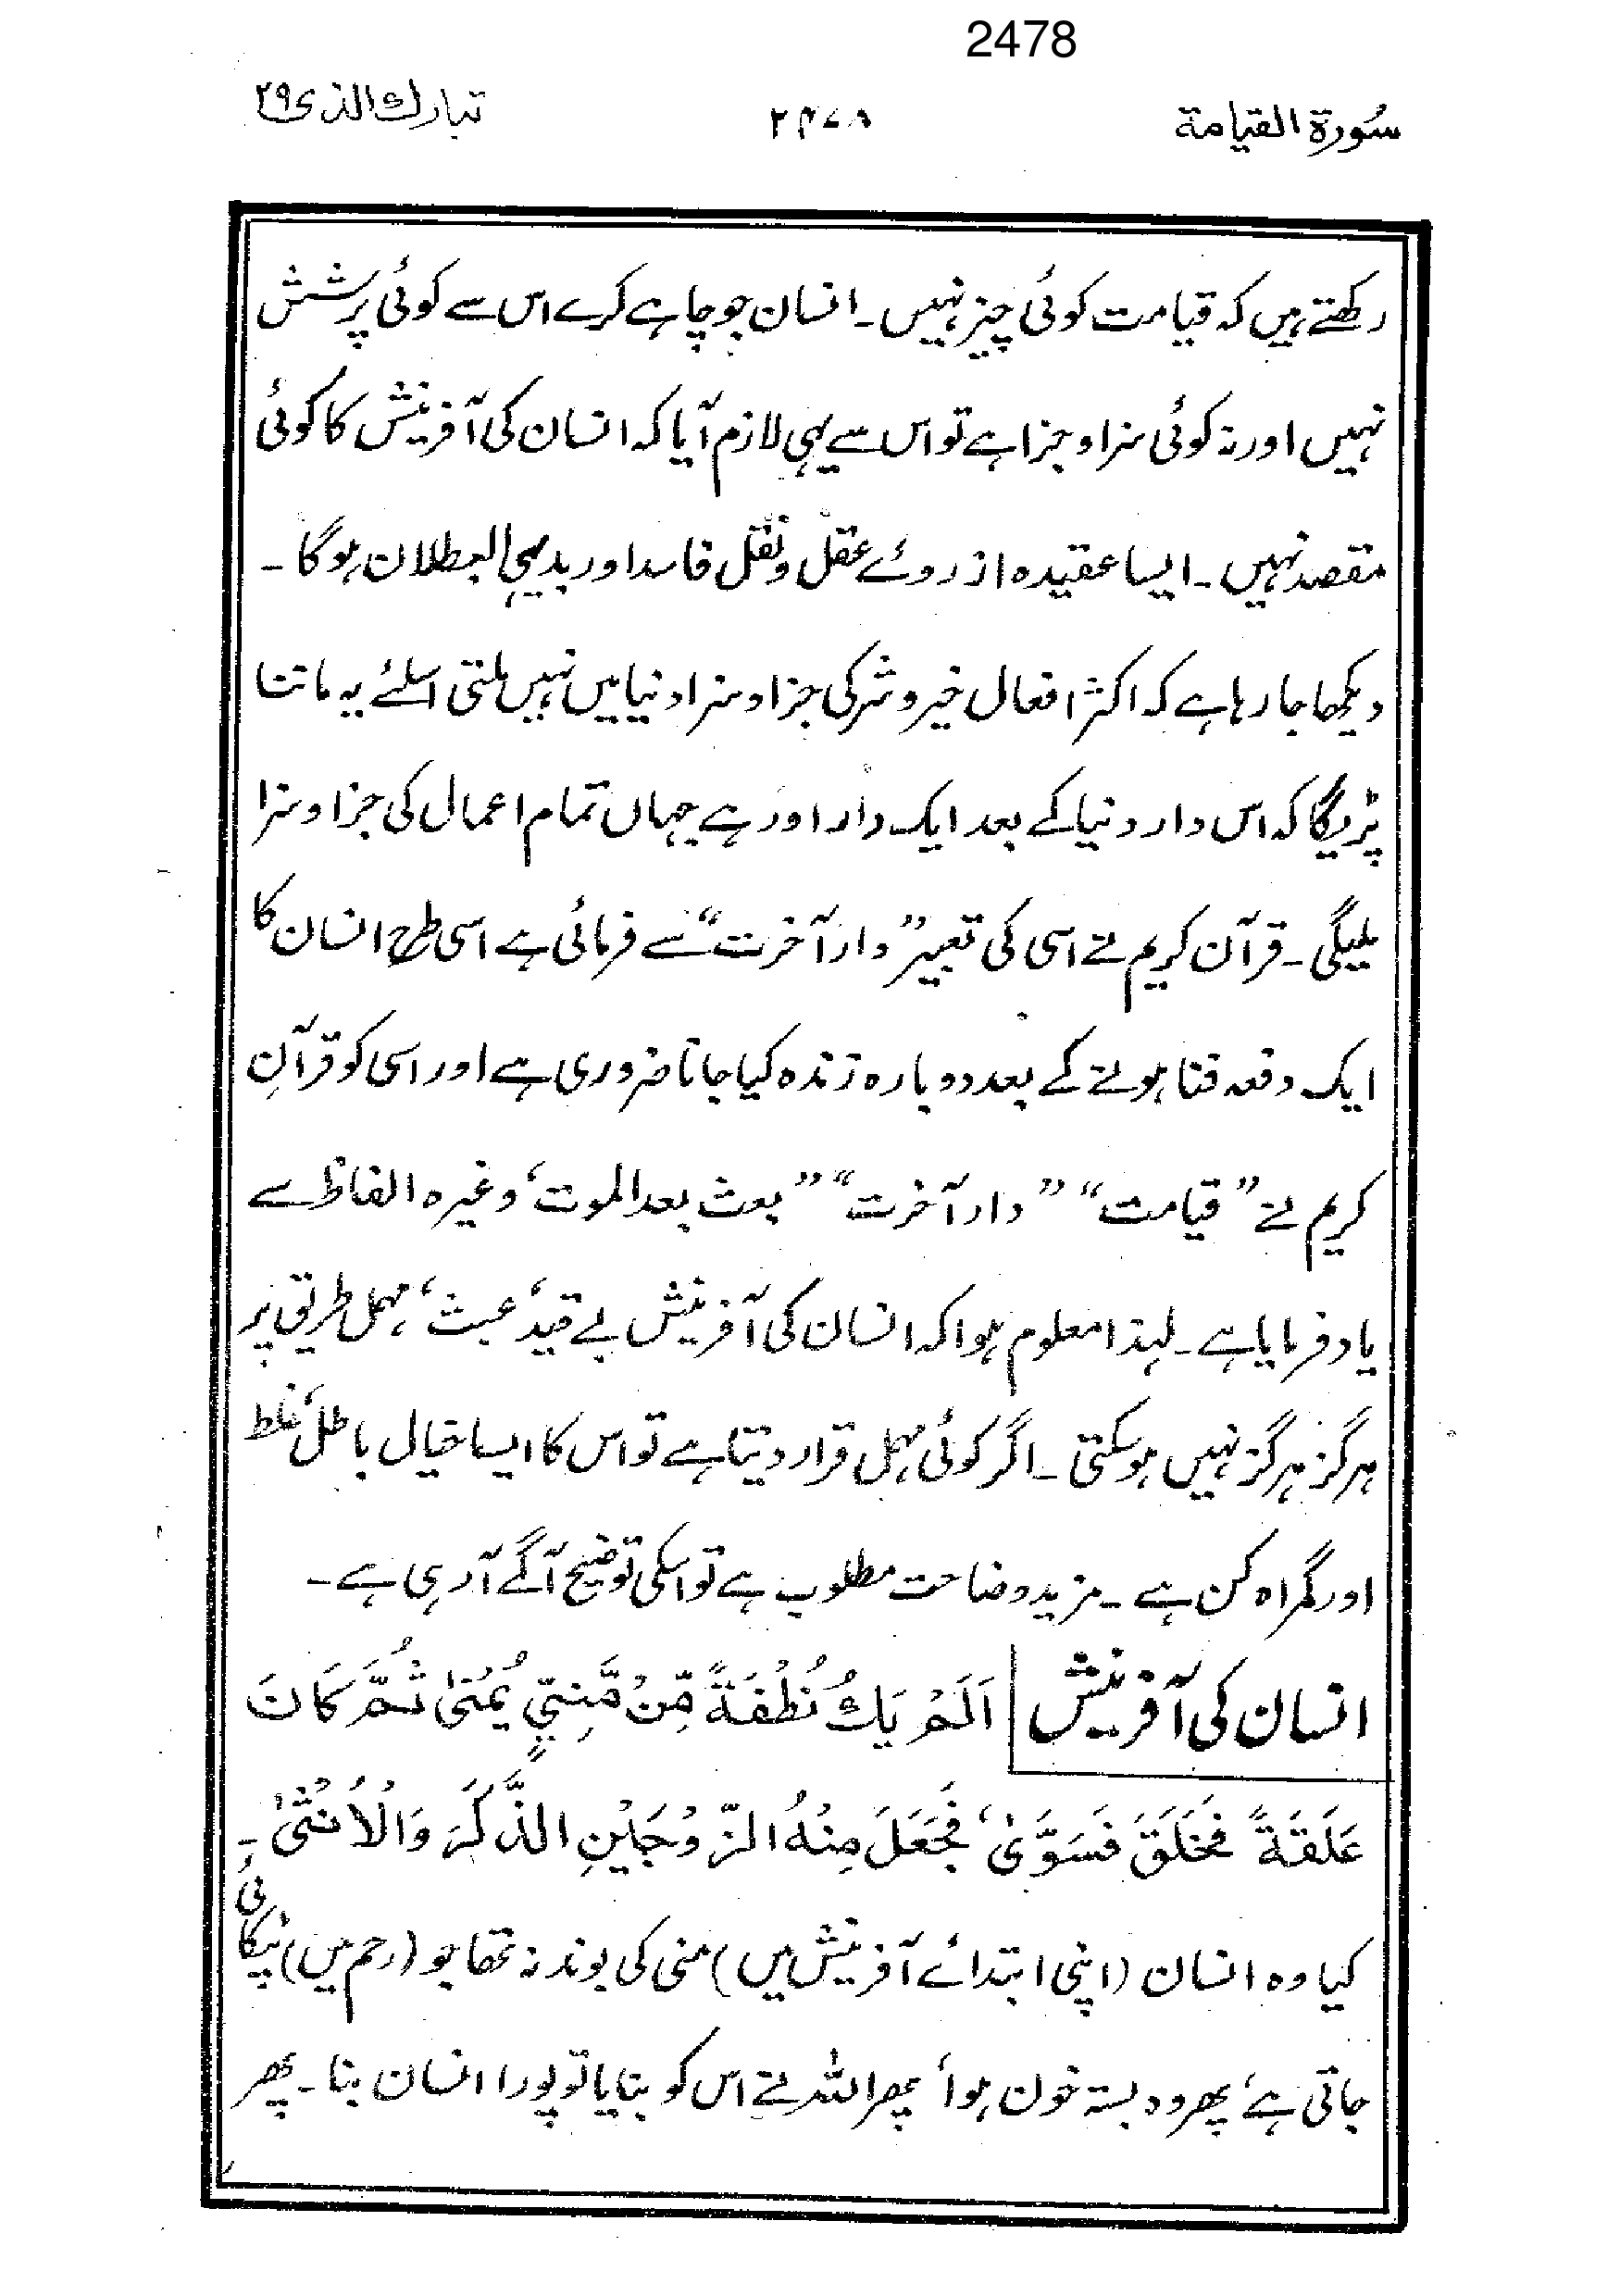 2478
سُورة القيامة ۲۴۷۸ تبارك الذى ۲۹
رکھتے ہیں کہ قیامت کوئی چیز نہیں۔ انسان جو چاہے کرے اس سے کوئی پرسش
نہیں اور نہ کوئی سزا و جزا ہے تو اس سے یہی لازم آیا کہ انسان کی آفرینش کا کوئی
مقصد نہیں۔ ایسا عقیدہ از روئے عقل و نقل فاسد اور بدیہی البطلان ہوگا۔
دیکھا جا رہا ہے کہ اکثر افعال خیر و شر کی جزا و سزا دنیا میں نہیں ملتی اسلئے یہ ماننا
پڑیگا کہ اس دار دنیا کے بعد ایک دار اور ہے جہاں تمام اعمال کی جزا و سزا
ملیگی۔ قرآن کریم نے اسی کی تعبیر ”دار آخرت“ سے فرمائی ہے اسی طرح انسان کا
ایک دفعہ فنا ہونے کے بعد دوبارہ زندہ کیا جانا ضروری ہے اور اسی کو قرآنِ
کریم نے ”قیامت“ ”دار آخرت“ ”بعث بعد الموت‘ وغیرہ الفاظ سے
یاد فرمایا ہے۔ لہذا معلوم ہوا کہ انسان کی آفرینش بے قید‘ عبث‘ مہمل طریق پر
ہرگز ہرگز نہیں ہوسکتی۔ اگر کوئی مہمل قرار دیتا ہے تو اس کا ایسا خیال باطل‘ غلط
اور گمراہ کن ہے۔ مزید وضاحت مطلوب ہے تو اسکی توضیح آگے آ رہی ہے۔
انسان کی آفرینش اَلَمْ يَكُ نُطْفَةً مِّنْ مَّنِيٍّ يُمْنٰى ثُمَّ كَانَ
عَلَقَةً فَخَلَقَ فَسَوّٰى‘ فَجَعَلَ مِنْهُ الزَّوْجَيْنِ الذَّكَرَ وَالْاُنْثٰى۔
کیا وہ انسان (اپنی ابتدائے آفرینش میں) منی کی بوند نہ تھا جو (رحم میں) ٹپکائی
جاتی ہے‘ پھر وہ بستہ خون ہوا‘ پھر اللہ نے اس کو بنایا تو پورا انسان بنا۔ پھر